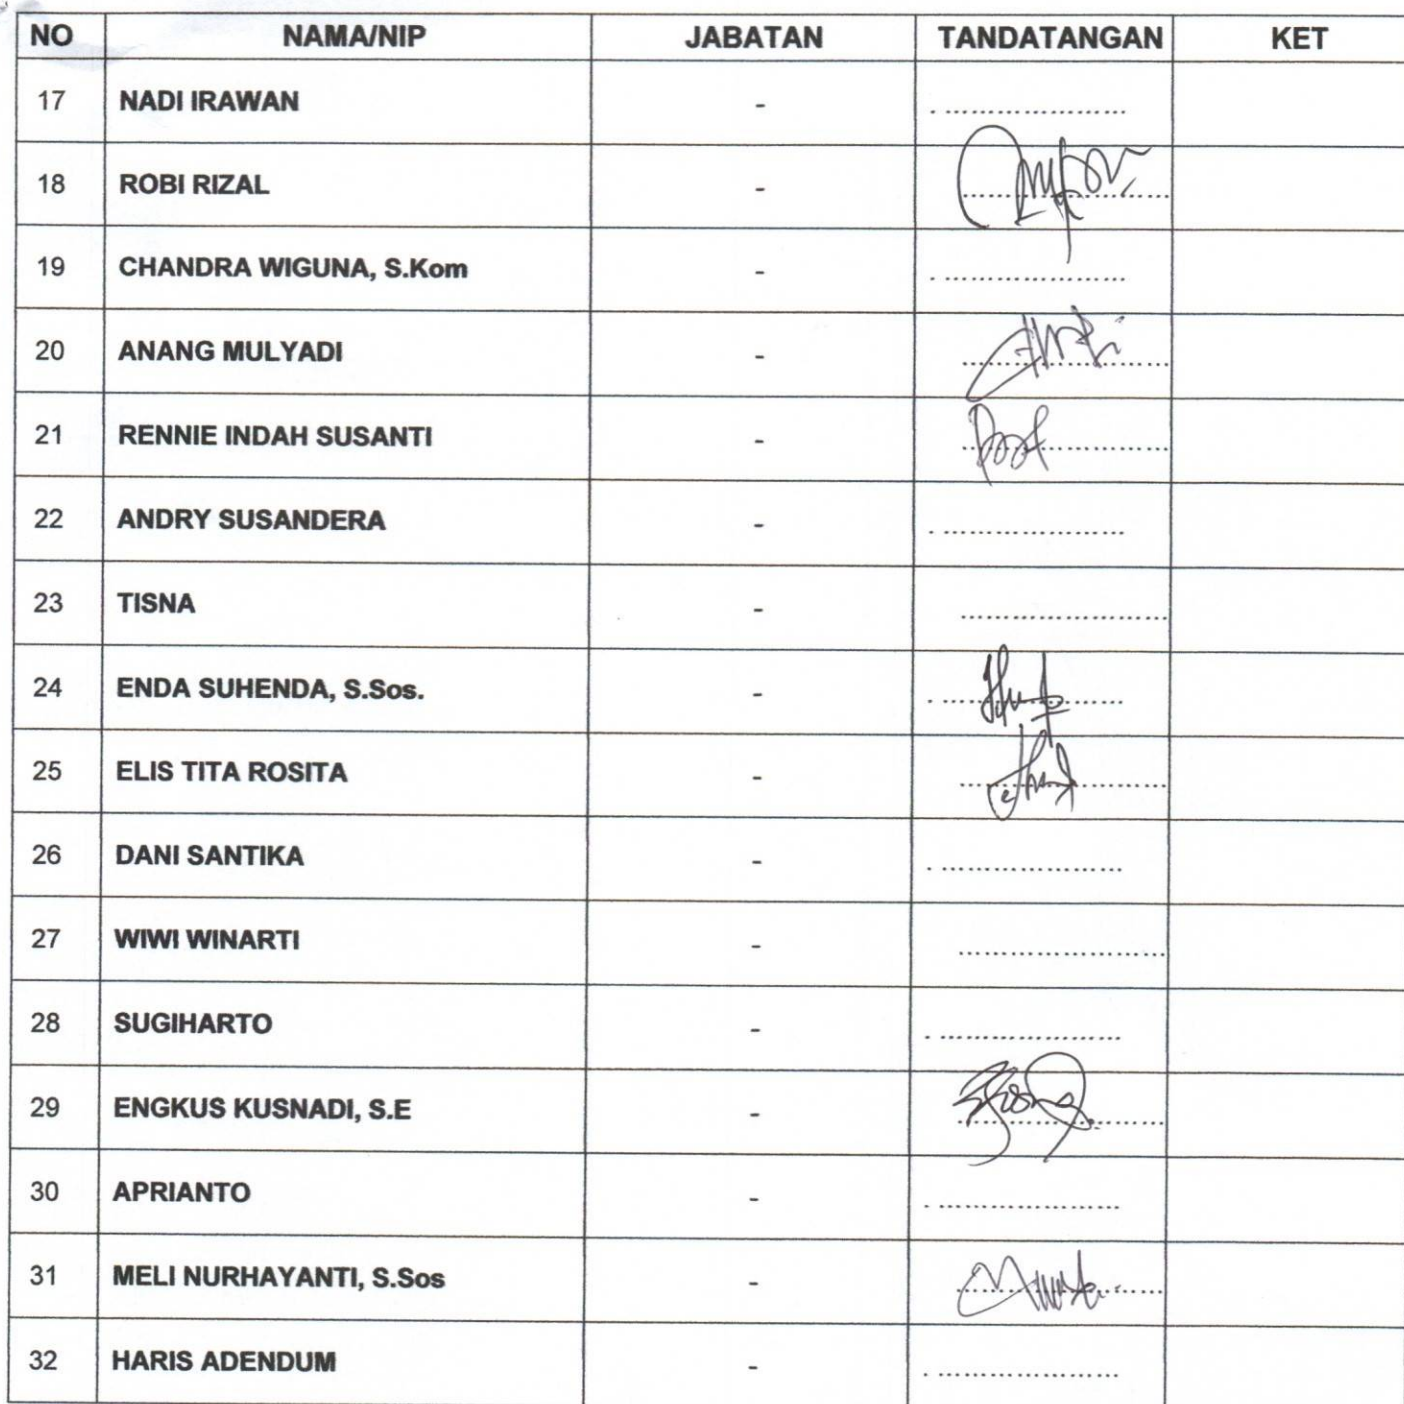 NO NAMA/NIP JABATAN TANDATANGAN KET
17 NADI IRAWAN - . ......................
18 ROBI RIZAL - .........................
19 CHANDRA WIGUNA, S.Kom - . ......................
20 ANANG MULYADI - .........................
21 RENNIE INDAH SUSANTI - .........................
22 ANDRY SUSANDERA - . ......................
23 TISNA - .........................
24 ENDA SUHENDA, S.Sos. - . ......................
25 ELIS TITA ROSITA - .........................
26 DANI SANTIKA - . ......................
27 WIWI WINARTI - .........................
28 SUGIHARTO - . ......................
29 ENGKUS KUSNADI, S.E - .........................
30 APRIANTO - . ......................
31 MELI NURHAYANTI, S.Sos - .........................
32 HARIS ADENDUM - . ......................